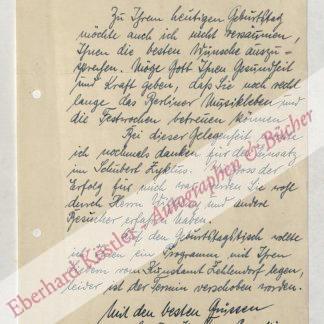 Zu Ihrem heutigen Geburtstag
möchte auch ich nicht versäumen,
Ihnen die besten Wünsche auszu-
sprechen. Möge Gott Ihnen Gesundheit
und Kraft geben, daß Sie noch recht
lange das Berliner Musikleben und
die Festwochen betreuen können
Bei dieser Gelegenheit
ich nochmals danken für den Einsatz
im Schubert Zyklus.
Erfolg für mich war werden Sie wohl
durch Herrn und andere
Besucher erfahren haben.
den Geburtstagstisch wollte
ich Ihnen ein Programm mit Ihren
vom Kunstamt Zehlendorf legen,
leider ist der Termin verschoben worden.
Mit den besten Grüssen
Eberhard Köstler - Autographen & Bücher